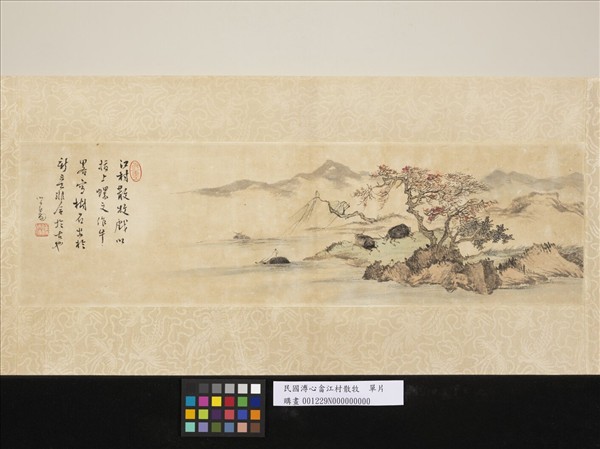 江村散牧戲以
指上螺文作牛
墨寫樹石出於
新意非居於古也
心畬
民國溥心畬江村散牧 單片
購畫 001229N000000000